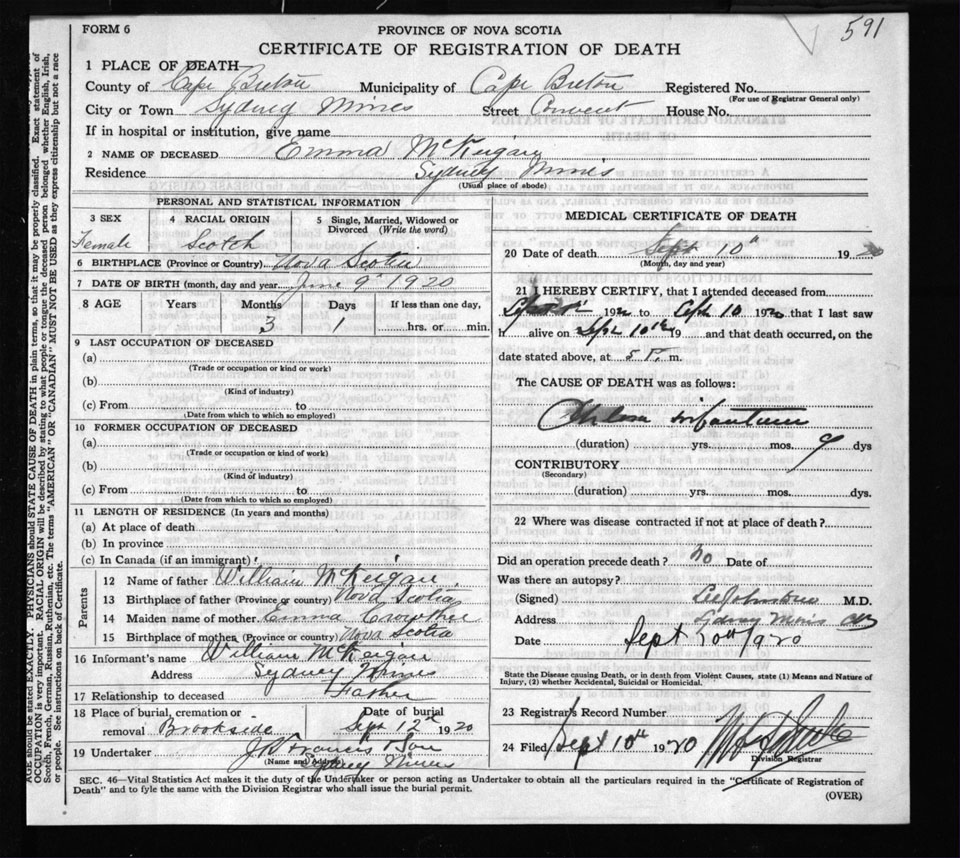 591
FORM 6
PROVINCE OF NOVA SCOTIA
CERTIFICATE OF REGISTRATION OF DEATH
1 PLACE OF DEATH
County of Cape Breton Municipality of Cape Breton Registered No.
(For use of Registrar General only)
City or Town Sydney Mines Street Convent House No.
If in hospital or institution, give name
2 NAME OF DECEASED Emma McKeigan
Residence Sydney Mines
(Usual place of abode)
PERSONAL AND STATISTICAL INFORMATION
3 SEX 4 RACIAL ORIGIN 5 Single, Married, Widowed or Divorced (Write the word)
Female Scotch
6 BIRTHPLACE (Province or Country) Nova Scotia
7 DATE OF BIRTH (month, day and year) June 9th 1920
8 AGE Years Months Days If less than one day,
3 1 hrs. or min.
9 LAST OCCUPATION OF DECEASED
(a)
(Trade or occupation or kind or work)
(b)
(Kind of industry)
(c) From to
(Date from which to which so employed)
10 FORMER OCCUPATION OF DECEASED
(a)
(Trade or occupation or kind of work)
(b)
(Kind of industry)
(c) From to
(Date from which to which so employed)
11 LENGTH OF RESIDENCE (In years and months)
(a) At place of death
(b) In province
(c) In Canada (if an immigrant)
Parents
12 Name of father William McKeigan
13 Birthplace of father (Province or country) Nova Scotia
14 Maiden name of mother Emma Crowther
15 Birthplace of mother (Province or country) Nova Scotia
16 Informant's name William McKeigan
Address Sydney Mines
17 Relationship to deceased Father
18 Place of burial, cremation or Date of burial
removal Brookside Sept 12th 1920
19 Undertaker J R Francis & Son
(Name and Address) Sydney Mines
MEDICAL CERTIFICATE OF DEATH
20 Date of death Sept 10th 1920
(Month, day and year)
21 I HEREBY CERTIFY, that I attended deceased from
192 to Sept 10 1920 that I last saw
h alive on Sept 10th 19 and that death occurred, on the
date stated above, at 5 P. m.
The CAUSE OF DEATH was as follows:
Cholera infantum
(duration) yrs. mos. 9 dys
CONTRIBUTORY
(Secondary)
(duration) yrs. mos. dys.
22 Where was disease contracted if not at place of death?
Did an operation precede death? no Date of
Was there an autopsy?
(Signed) Johnstone M.D.
Address Sydney Mines
Date Sept 1920
State the Disease causing Death, or in death from Violent Causes, state (1) Means and Nature of
Injury, (2) whether Accidental, Suicidal or Homicidal.
23 Registrar's Record Number
24 Filed Sept 10th 1920
Division Registrar
SEC. 46—Vital Statistics Act makes it the duty of the Undertaker or person acting as Undertaker to obtain all the particulars required in the "Certificate of Registration of
Death" and to fyle the same with the Division Registrar who shall issue the burial permit.
(OVER)
AGE should be stated EXACTLY. PHYSICIANS should STATE CAUSE OF DEATH in plain terms, so that it may be properly classified. Exact statement of
OCCUPATION is very important. RACIAL ORIGIN will be described by stating to what people or tongue the deceased person belonged whether English, Irish,
Scotch, French, German, Russian, Ruthenian, etc. The terms "AMERICAN" OR "CANADIAN" MUST NOT BE USED as they express citizenship but not a race
or people. See instructions on back of Certificate.